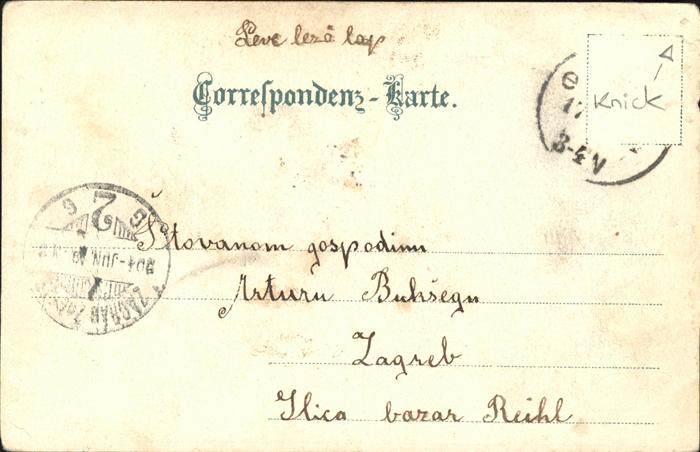 Levelező lap
Correspondenz-Karte.
Knick
17
3-4 V
2
904-JUN
ZÁGRÁB
Štovanom gospodinu
Arturu Bukšegu
Zagreb
Ilica bazar Reihl